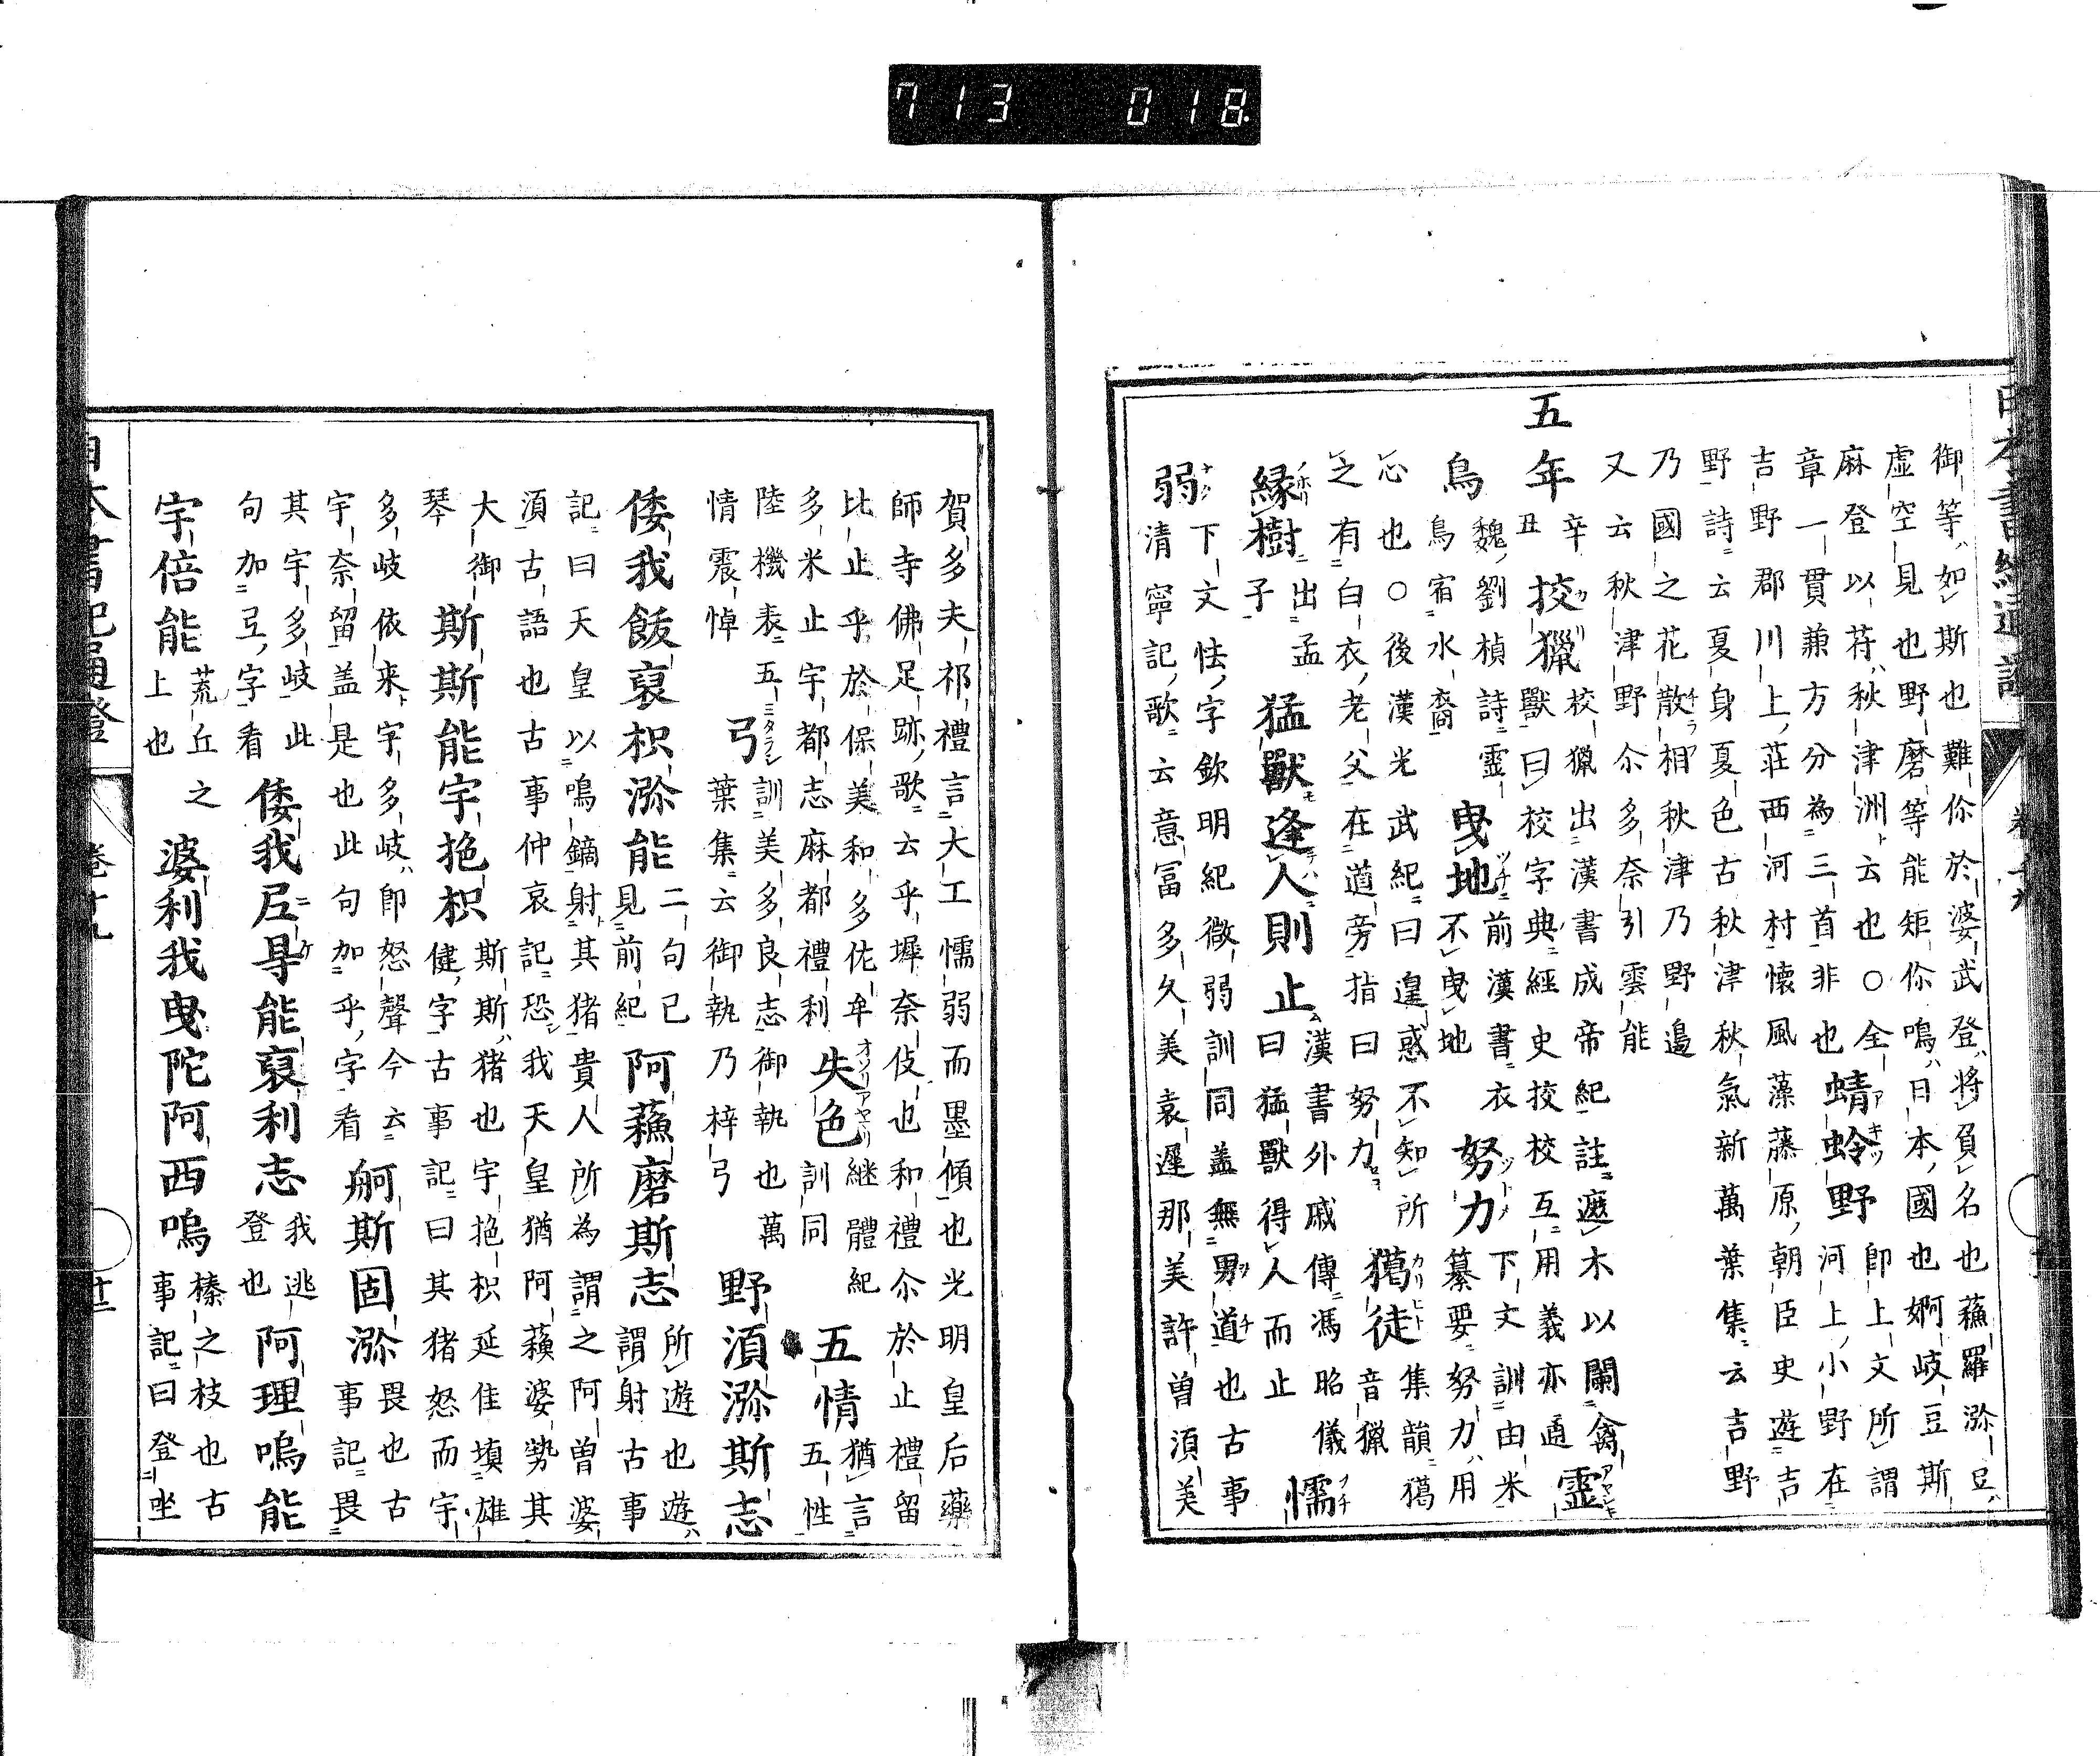 713 018
御等如斯也難你於婆武登將負名也蘓羅瀰豆
虛空見也野磨等能矩你嗚日本國也婀岐豆斯
麻登以苻秋津洲云也〇全蜻蛉野即上文所謂
章一貫兼方分為三首非也 河上小野在
吉野郡川上莊西河村懷風藻藤原朝臣史遊吉
野詩云夏身夏色古秋津秋氣新萬葉集云吉野
乃國之花散相秋津乃野邊
又云秋津野尒多奈引雲能
五年辛丑 挍獵校獵出漢書成帝紀註遮木以闌禽
獸曰校字典經史挍校互用義亦通 靈
鳥魏劉楨詩靈鳥宿水裔 曳地前漢書衣不曳地 努力下文訓由米
纂要努力用
心也〇後漢光武紀曰遑惑不知所
之有白衣老父在道旁指曰努力 獦徒集韻獦音獵
緣樹出孟子 猛獸逢人則止漢書外戚傳馮昭儀
曰猛獸得人而止 懦
弱下文怯字欽明紀微弱訓同盖無男道也古事
清寧記歌云意冨多久美袁遲那美許曽湏美
日本書紀通證 卷十九 廿一
賀多夫祁禮言大工懦弱而墨傾也光明皇后藥
師寺佛足跡歌云乎墀奈伎也和禮尒於止禮留
比止乎於保美和多佐牟 失色継體紀訓同 五情猶言五性
多米止宇都志麻都禮利
陸機表五情震悼
弓訓美多良志御執也萬葉集云御執乃梓弓 野湏瀰斯志
倭我飫裒枳瀰能二句已見前紀 阿蘓磨斯志所遊也遊謂射古事
記曰天皇以鳴鏑射其猪貴人所為謂之阿曽婆
湏古語也古事仲哀記恐我天皇猶阿蘓婆勢其
大御琴 斯斯能宇扡枳斯斯猪也宇扡枳延佳塡雄
健字古事記曰其猪怒而宇
多岐依来字多岐即怒聲今云
宇奈留盖是也此句加乎字看 舸斯固瀰畏也古事記畏
其宇多岐此句加弖字看 倭我尼㝵能裒利志我逃登也 阿理嗚能
宇倍能荒丘之上也 婆利我曳陀阿西嗚榛之枝也古
事記曰登坐
日本書紀通證 卷十九 廿二